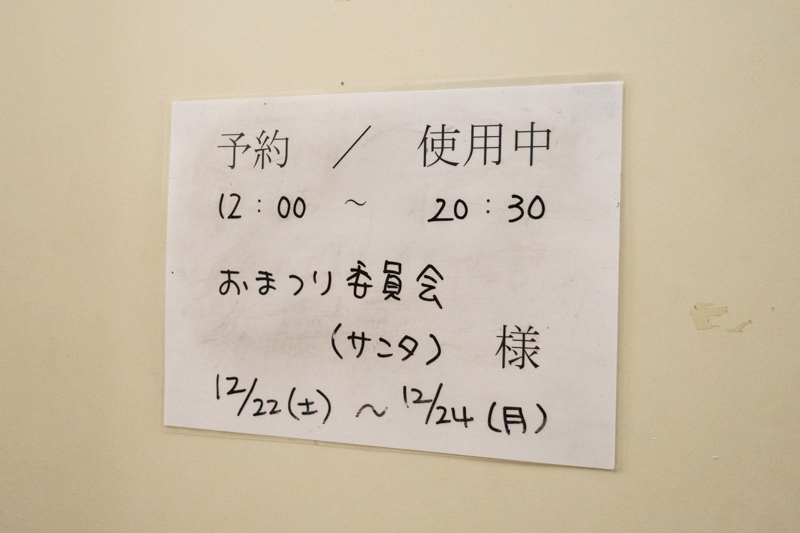 予約 ／ 使用中
12:00 〜 20:30
おまつり委員会
(サンタ) 様
12/22(土) 〜 12/24(月)